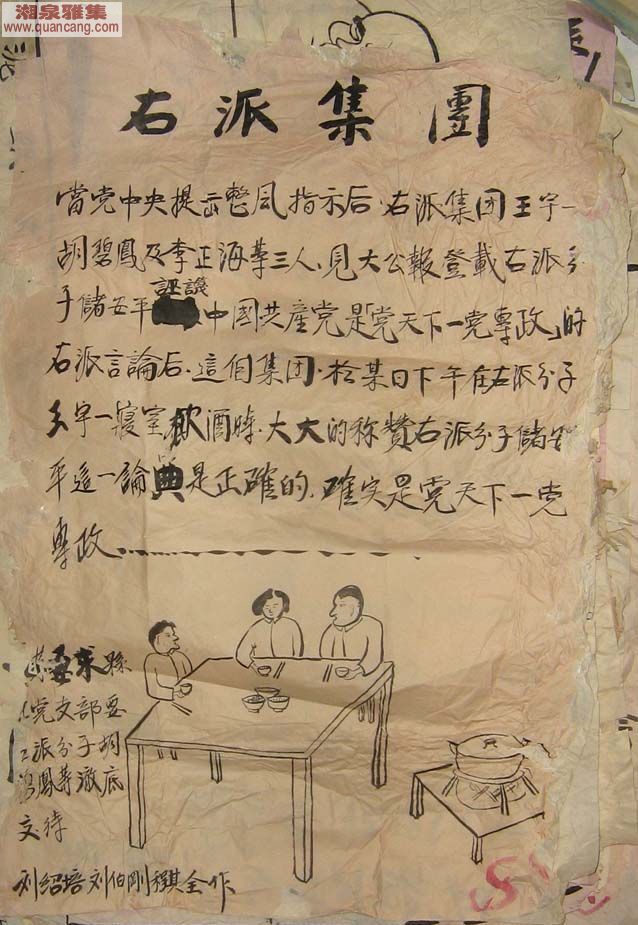 湘泉雅集
www.quancang.com
右派集團
當党中央提示整风指示后·右派集团王宇一
胡碧鳳及李正海等三人、見大公報登載右派分
子儲安平誣譏中國共產党是「党天下一党專政」的
右派言論后·這個集团·於某日下午在右派分子
王宇一寢室飲酒時·大大的称贊右派分子儲安
平這一論典是正確的、確实是党天下一党
專政
要求縣
党支部要
派分子胡
鳳等澈底
交待
刘紹培刘伯剛程其全作